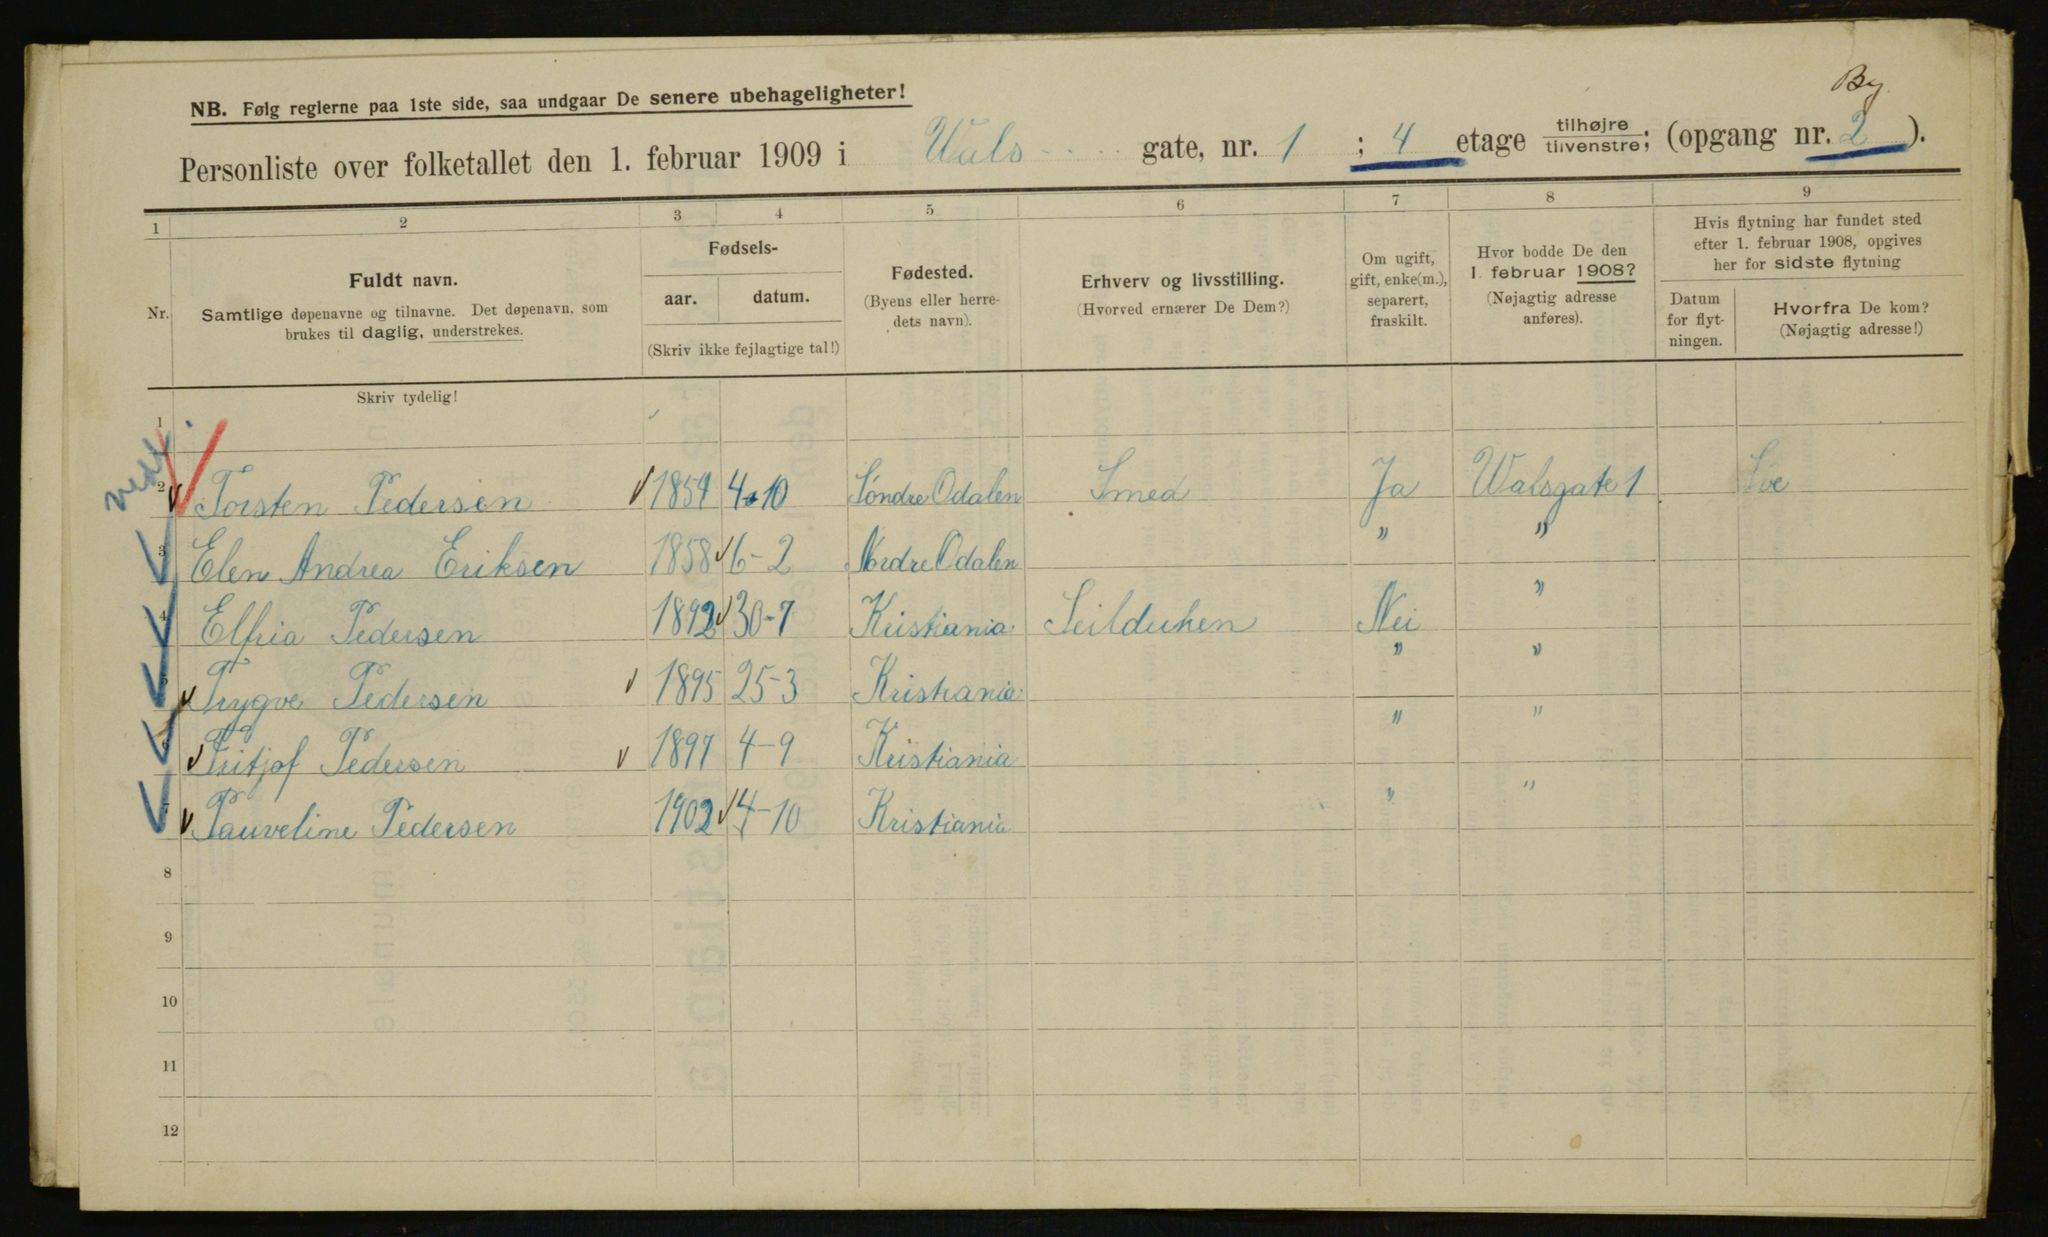 By
NB. Følg reglerne paa 1ste side, saa undgaar De senere ubehageligheter!
Personliste over folketallet den 1. februar 1909 i Wals gate, nr. 1 ; 4 etage tilhøjre tilvenstre; (opgang nr. 2 ).
1 2 3 4 5 6 7 8 9
Nr.
Fuldt navn.
Samtlige døpenavne og tilnavne. Det døpenavn, som
brukes til daglig, understrekes.
Fødsels-
aar. datum.
(Skriv ikke fejlagtige tal!)
Fødested.
(Byens eller herre-
dets navn).
Erhverv og livsstilling.
(Hvorved ernærer De Dem?)
Om ugift,
gift, enke(m.),
separert,
fraskilt.
Hvor bodde De den
1. februar 1908?
(Nøjagtig adresse
anføres).
Hvis flytning har fundet sted
efter 1. februar 1908, opgives
her for sidste flytning
Datum
for flyt-
ningen.
Hvorfra De kom?
(Nøjagtig adresse!)
Skriv tydelig!
1
2 Torsten Pedersen 1859 4-10 Søndre Odalen Smed Ja Walsgate 1
3 Elen Andrea Eriksen 1858 6-2 Nordre Odalen " "
4 Elfria Pedersen 1892 30-7 Kristiania Seilduken Nei "
5 Trygve Pedersen 1895 25-3 Kristiania " "
6 Fritjof Pedersen 1897 4-9 Kristiania " "
7 Pauveline Pedersen 1902 4-10 Kristiania " "
8
9
10
11
12